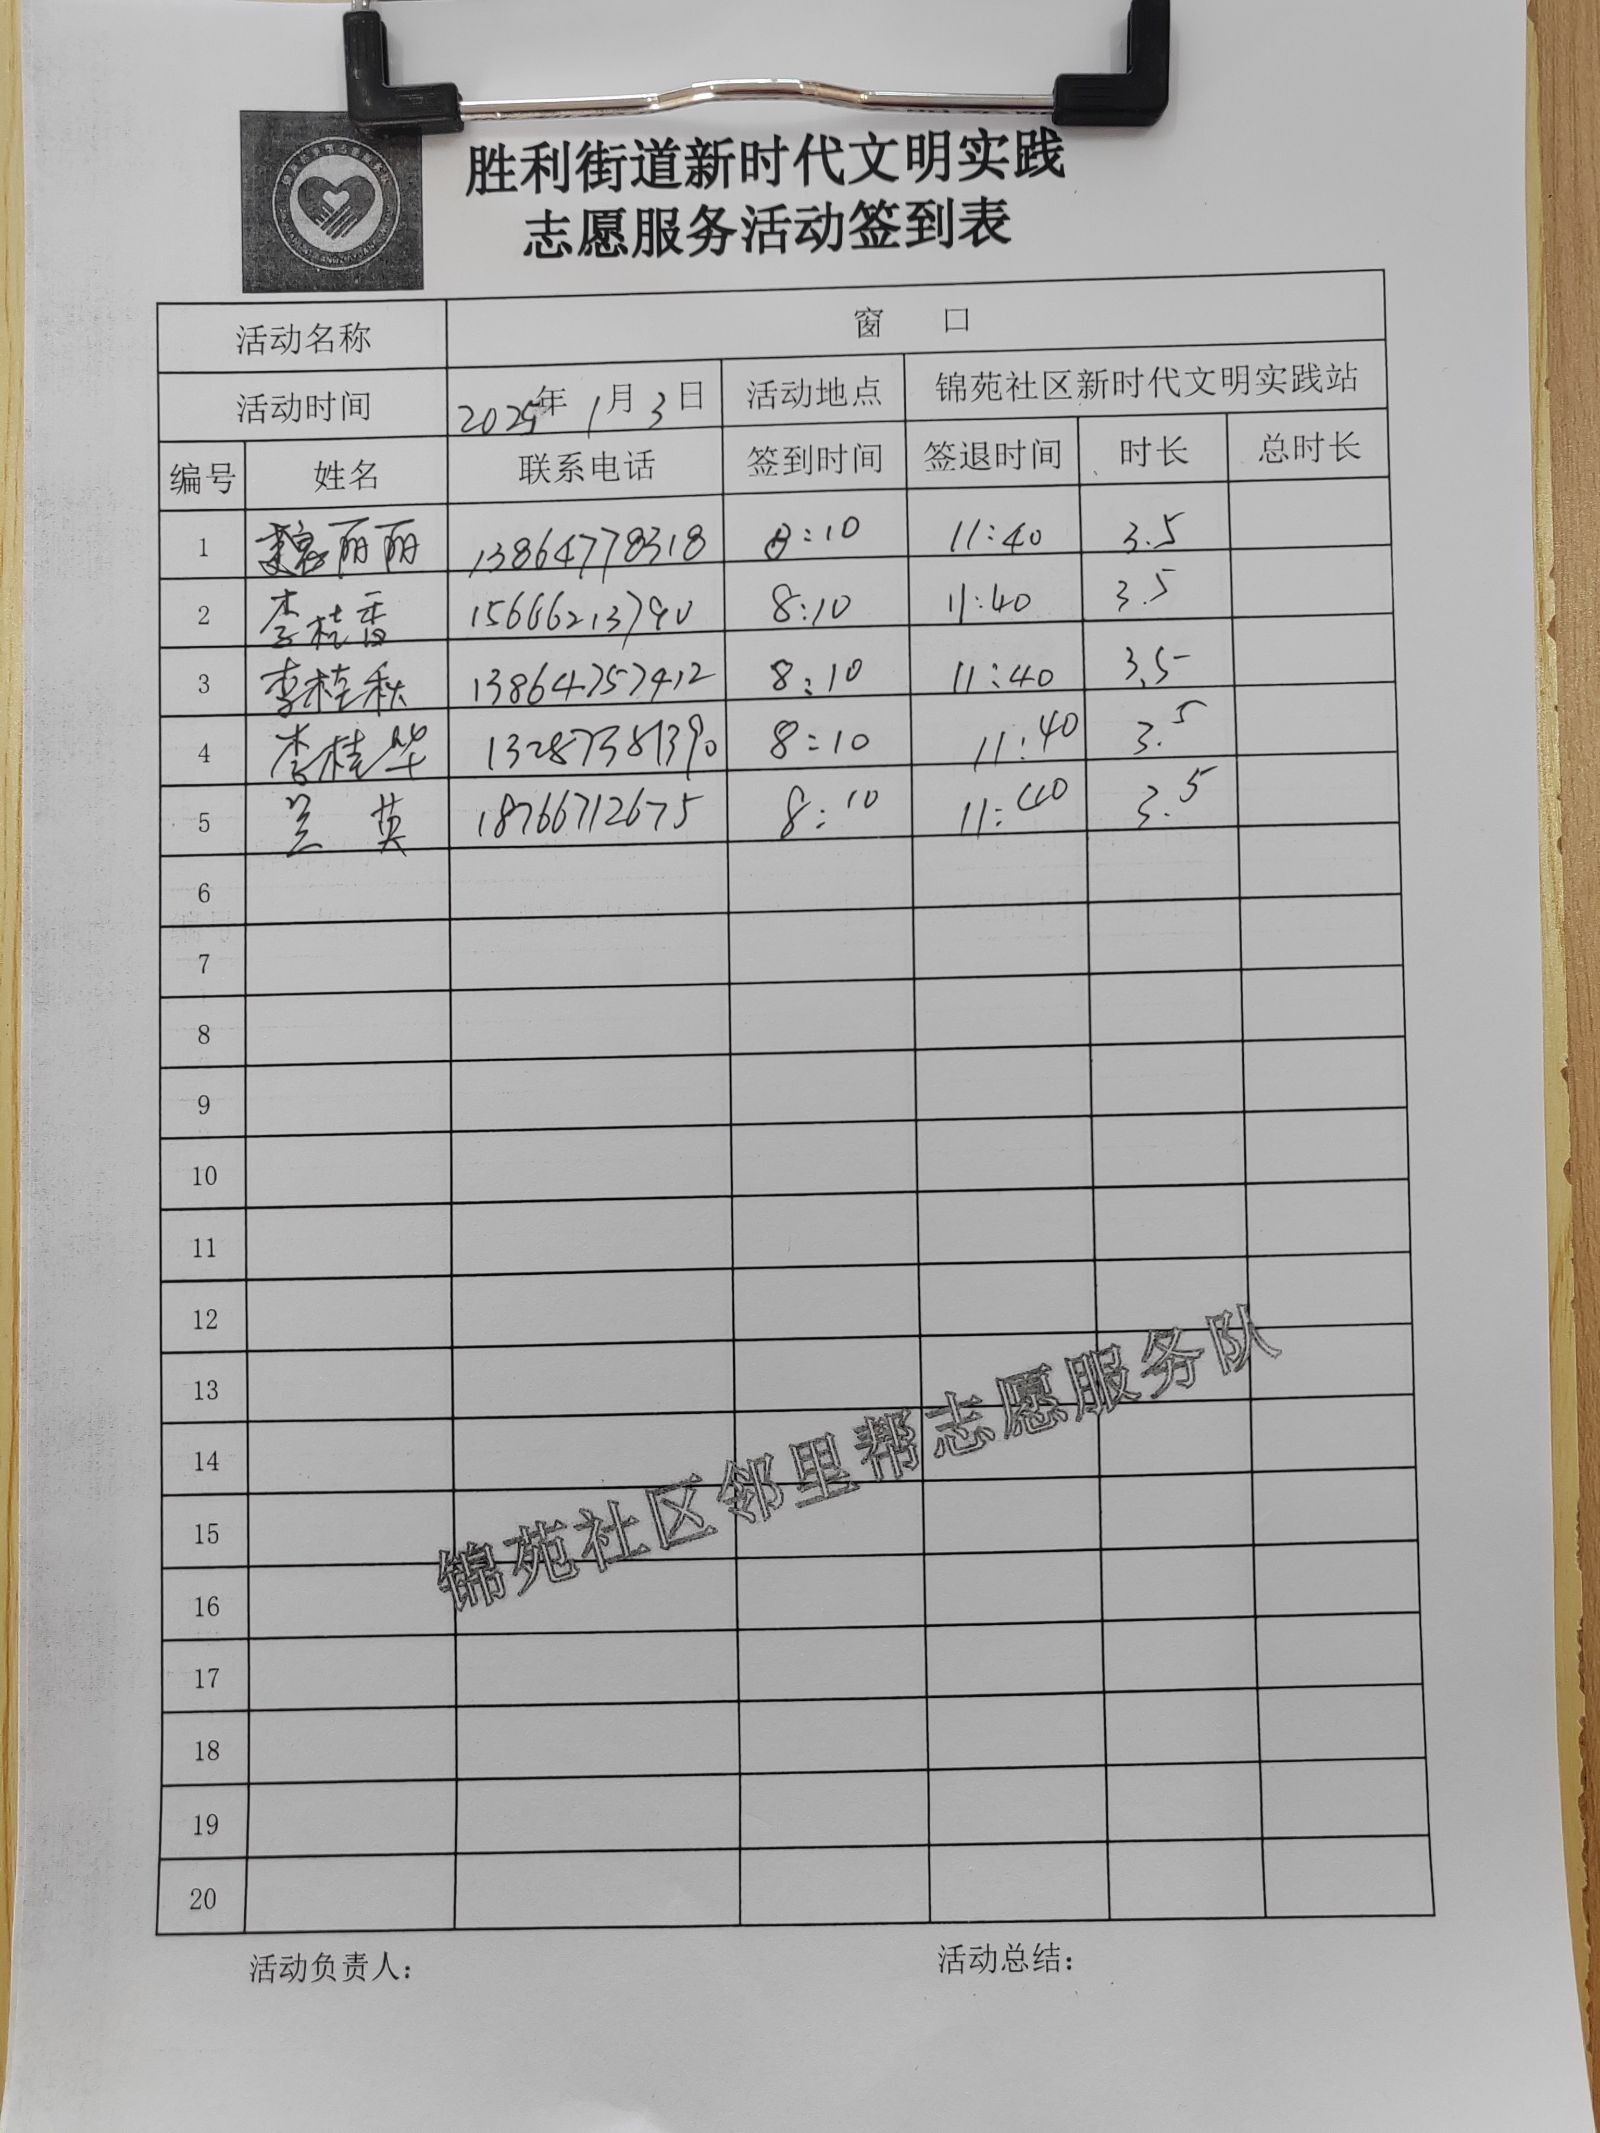 胜利街道新时代文明实践
志愿服务活动签到表
活动名称 窗 口
活动时间 2025年1月3日 活动地点 锦苑社区新时代文明实践站
编号 姓名 联系电话 签到时间 签退时间 时长 总时长
1 魏丽丽 13864778318 8:10 11:40 3.5
2 李桂香 15666213790 8:10 11:40 3.5
3 李桂秋 13864757412 8:10 11:40 3.5
4 李桂华 13287381390 8:10 11:40 3.5
5 兰英 18766712675 8:10 11:40 3.5
6
7
8
9
10
11
12
13
14
15
16
17
18
19
20
锦苑社区邻里帮志愿服务队
活动负责人： 活动总结：